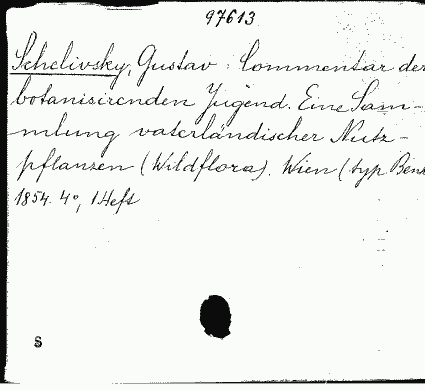 97613
Schelivsky, Gustav: Commentar der
botanisirenden Jugend. Eine Sam-
mlung vaterländischer Nutz-
pflanzen (Wildflora). Wien (typ
1854. 4°, 1 Heft
S